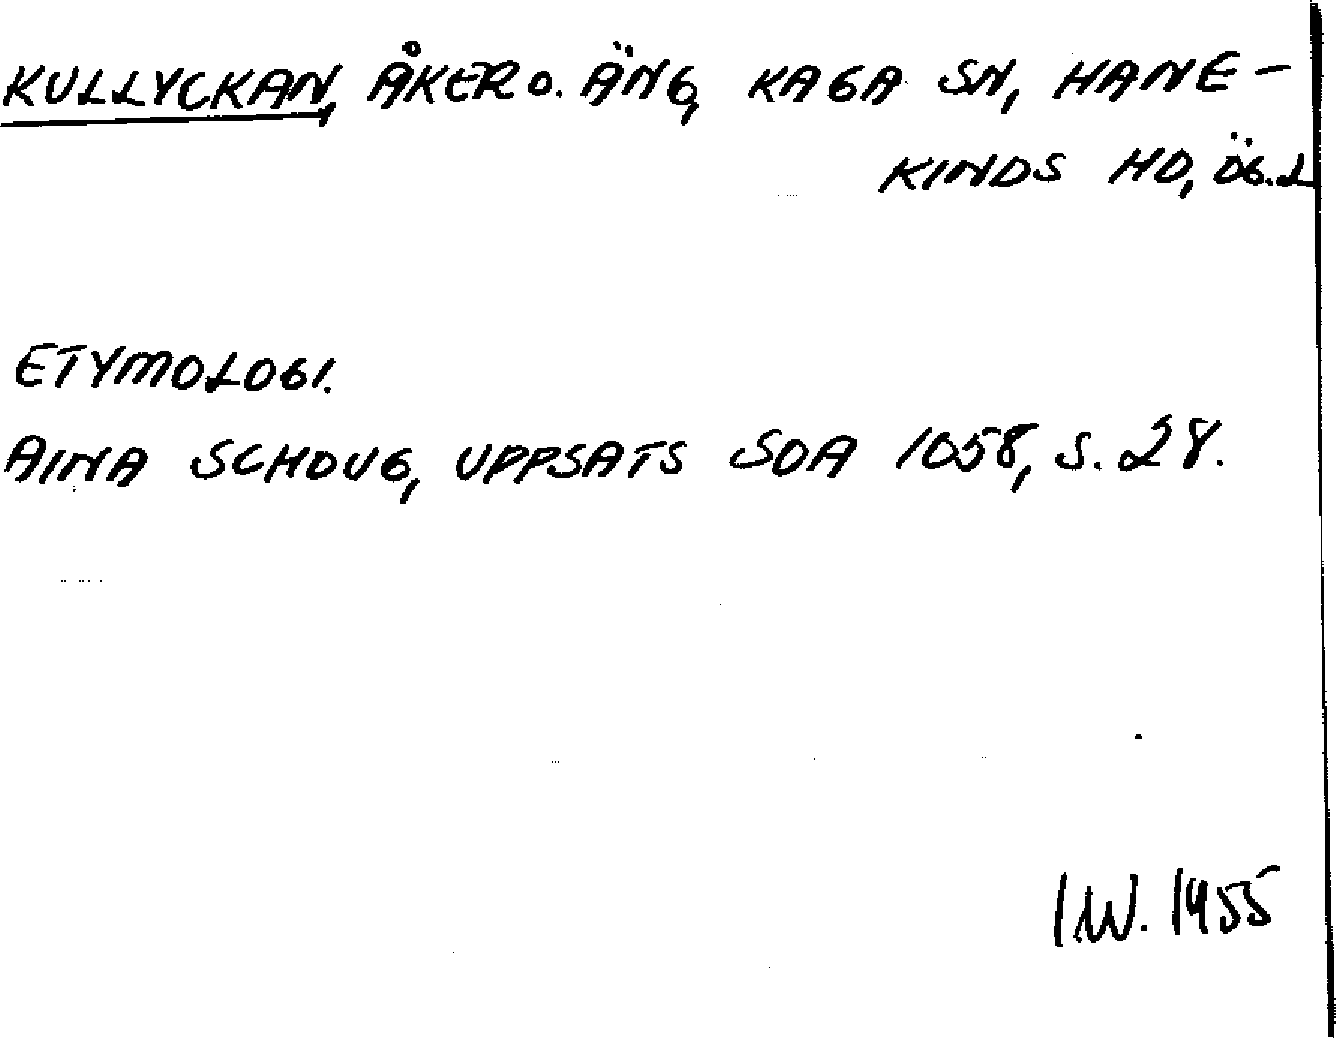 KULLYCKAN, ÅKER O. ÄNG, KAGA SN, HANE-
KINDS HD, ÖG.L
ETYMOLOGI.
AINA SCHOUG, UPPSATS SOA 1058, S. 28.
I.W. 1955